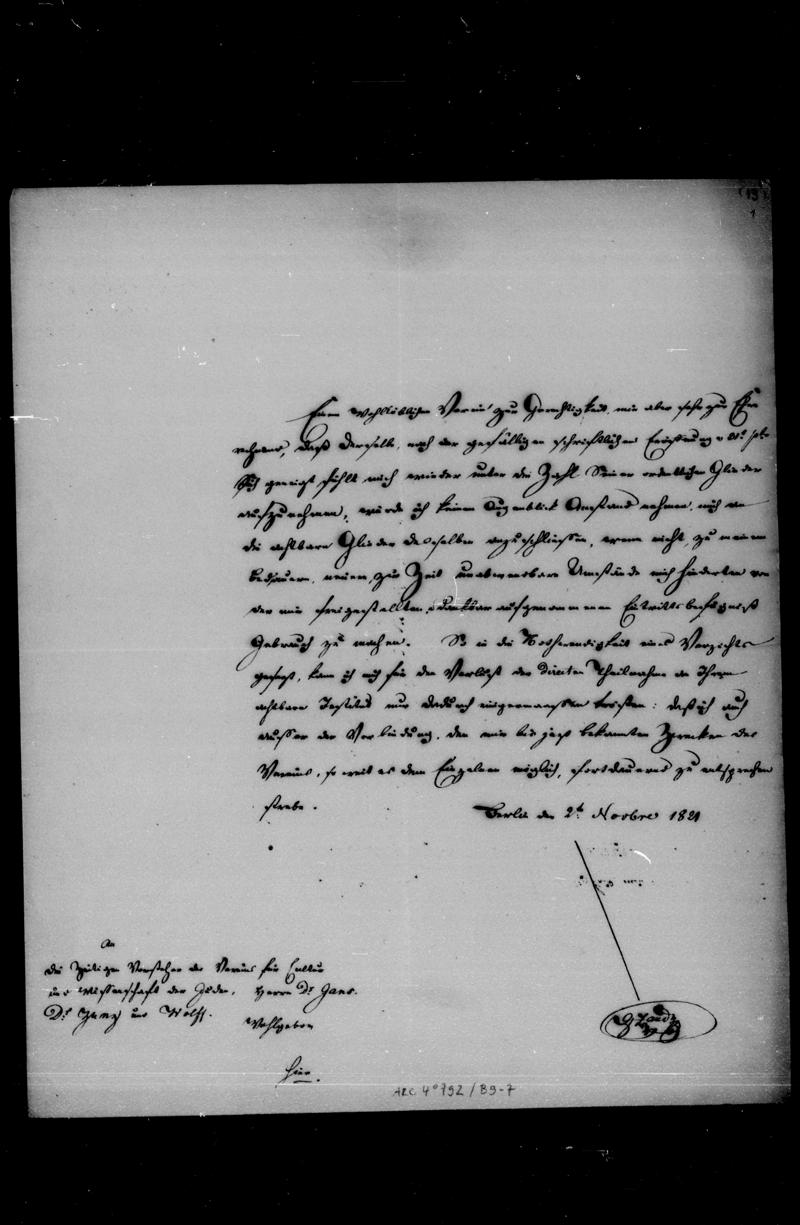 (13)
1
Einem Wohllöblichen Verein zur Gerechtigkeit, mir aber sehr zur Ehre
rechnend, daß derselbe, nach der gefälligen schriftlichen Eröffnung v
Sich geneigt fühlt mich wieder unter die Zahl Seiner ordentlichen Glieder
aufzunehmen, würde ich keinen Augenblick Anstand nehmen, mich an
die achtbaren Glieder desselben anzuschließen, wenn nicht, zu meinem
Bedauern, zur Zeit unabwendbare Umstände mich hinderten von
der mir freigestellten, dankbar aufgenommenen Eintrittsbefugniß
Gebrauch zu machen. So in die Nothwendigkeit eines Verzichts
gesetzt, kann ich mich für den Verlust der directen Theilnahme an Ihrem
achtbaren Institut nur dadurch einigermaßen trösten: daß ich auch
ausser der Verbindung, den mir bis jetzt bekannten Zwecken des
Vereins, so weit es dem Einzelnen möglich, fortdauernd zu entsprechen
strebe.
Berlin den 2t Novbre 1821
An
die Vorsteher des Vereins für Cultur
und Wissenschaft der Juden, Herrn Dr Gans.
Dr Zunz und Wolff.
Wohlgeboren
hier.
ARC. 4° 792 / B9-7